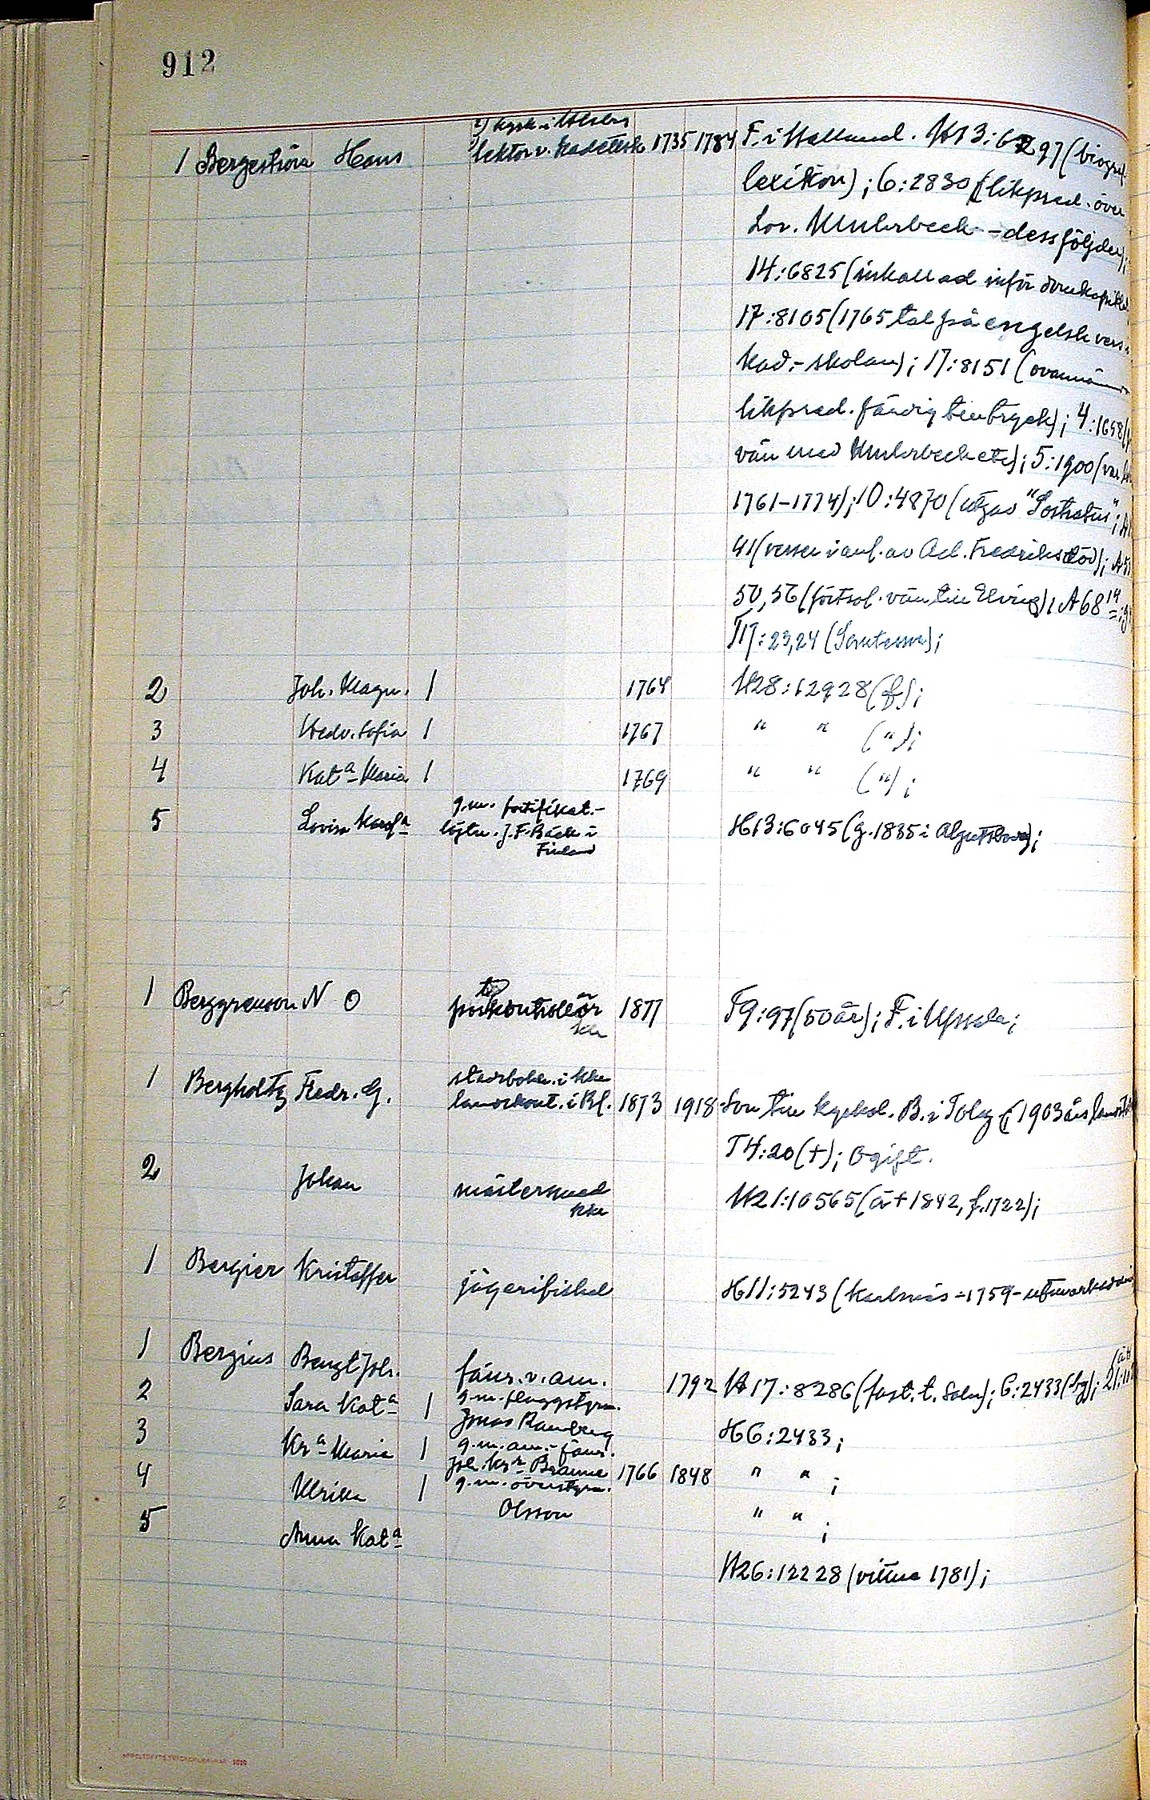 912
2) kyrk. i
1 Bergeström Hans lektor v. kadettsk 1735 1784 F. i Halland. H13:6297 (biograf.
lexikon); 6:2830 (likpred. över
Lov. Muhrbeck - dess följder);
14:6825 (inkallad inför domkapitl
17:8105 (1765 tal på engelsk vers
kad.-skolan); 17:8151 (ovannämn
likpred. färdig till tryck); 4:1658
vän med Muhrbeck etc); 5:1900 (var
1761-1774); 10:4870 (utgav "Sostratus";
41 (verser i anl. av Ad. Fredriks död);
50,56 (förtrol. vän till Elving); A68
T17:23,24
2 Joh. Magn. 1 1764 H28:12928 (f);
3 Hedv. Sofia 1 1767 " " (");
4 Kata Maria 1 1769 " " (");
5 Lovisa g.m. fortifikat.-
löjtn. J. F. Back i
Finland H13:6045 (g. 1835 i
1 Berggrenson N O kontrollör 1877 T9:97 (50 år); F. i Uppsala;
kka
1 Bergholtz Fredr. G. stadsbokh. i kka
landskont. i Bl. 1873 1918 Son till kyrkoh. B. i Tolg (1903 års
T4:20 (+); Ogift.
2 Johan mästersmed
kka H21:10565 (ä + 1842, f. 1722);
1 Bergier Kristoffer jägerifiskal H11:5243 (Karlsnäs - 1759 -
1 Bergius Bengt Joh. fänr. v. am. 1792 H17:8286 (fast. t. salu); 6:2433 (bg);
2 Sara Kata 1 g.m. flaggstyrm.
Jonas Ramberg H6:2433;
3 Kra Maria 1 g.m. am.-fänr.
Joh. Kr Braune 1766 1848 " " ;
4 Ulrika 1 g.m. överstyrm.
Olsson " " ;
5 Anna Kata
H26:12228 (vittne 1781);